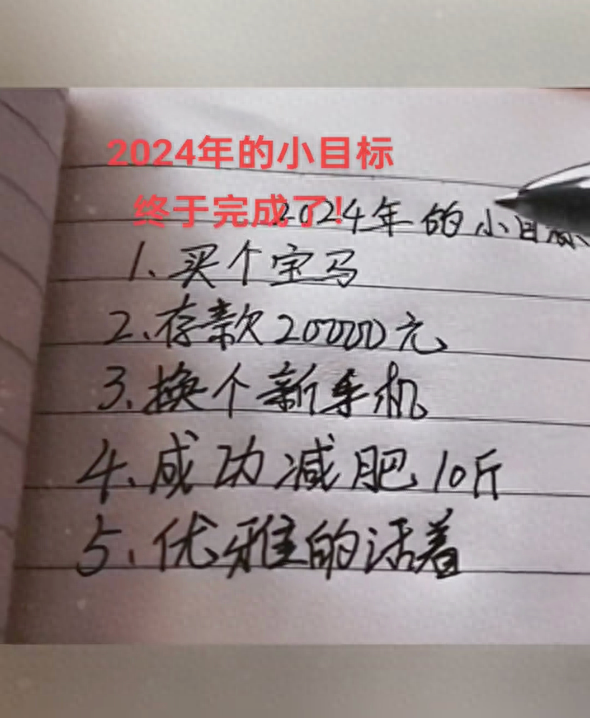 2024年的小目标
终于完成了!
2024年的小目标
1、买个宝马
2、存款200000元
3、换个新手机
4、成功减肥10斤
5、优雅的活着